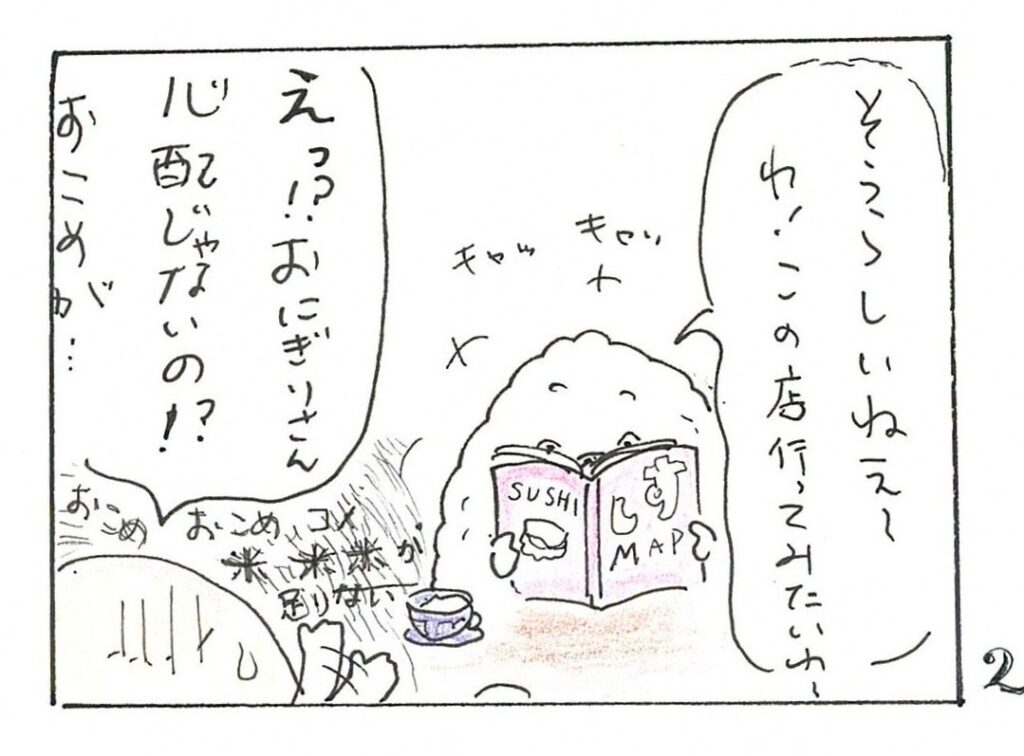 そうらしいねえ〜
わ!この店行ってみたいわ〜
キャッ
キャッ
SUSHI
すし
MAP
えっ!?おにぎりさん
心配じゃないの!?
おこめが…
おこめ
おこめ、コメ
米 米 米が
足りない
2